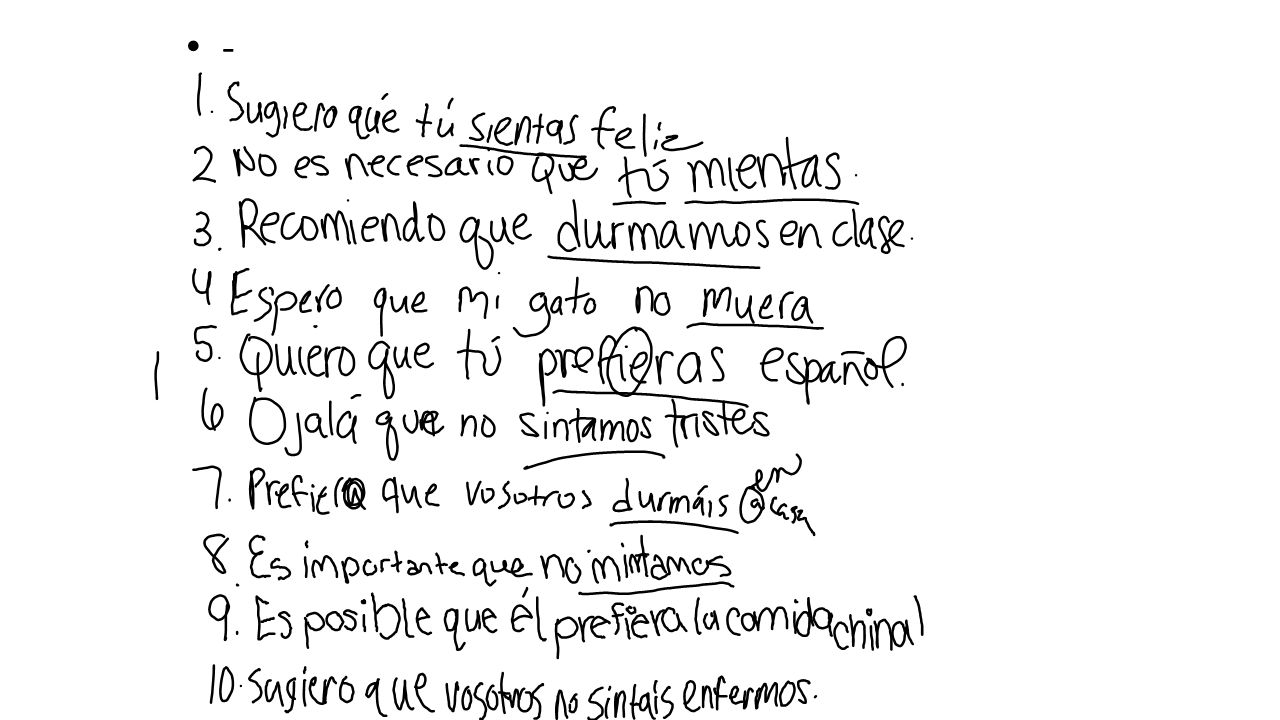 • -
1. Sugiero qué tú sientas feliz
2 No es necesario que tú mientas.
3. Recomiendo que durmamos en clase.
4 Espero que mi gato no muera
5. Quiero que tú prefieras español.
6 Ojalá que no sintamos tristes
7. que vosotros durmáis en casa
8. Es importante que no mintamos
9. Es posible que él prefiera la comida china
10. Sugiero que vosotros no sintais enfermos.